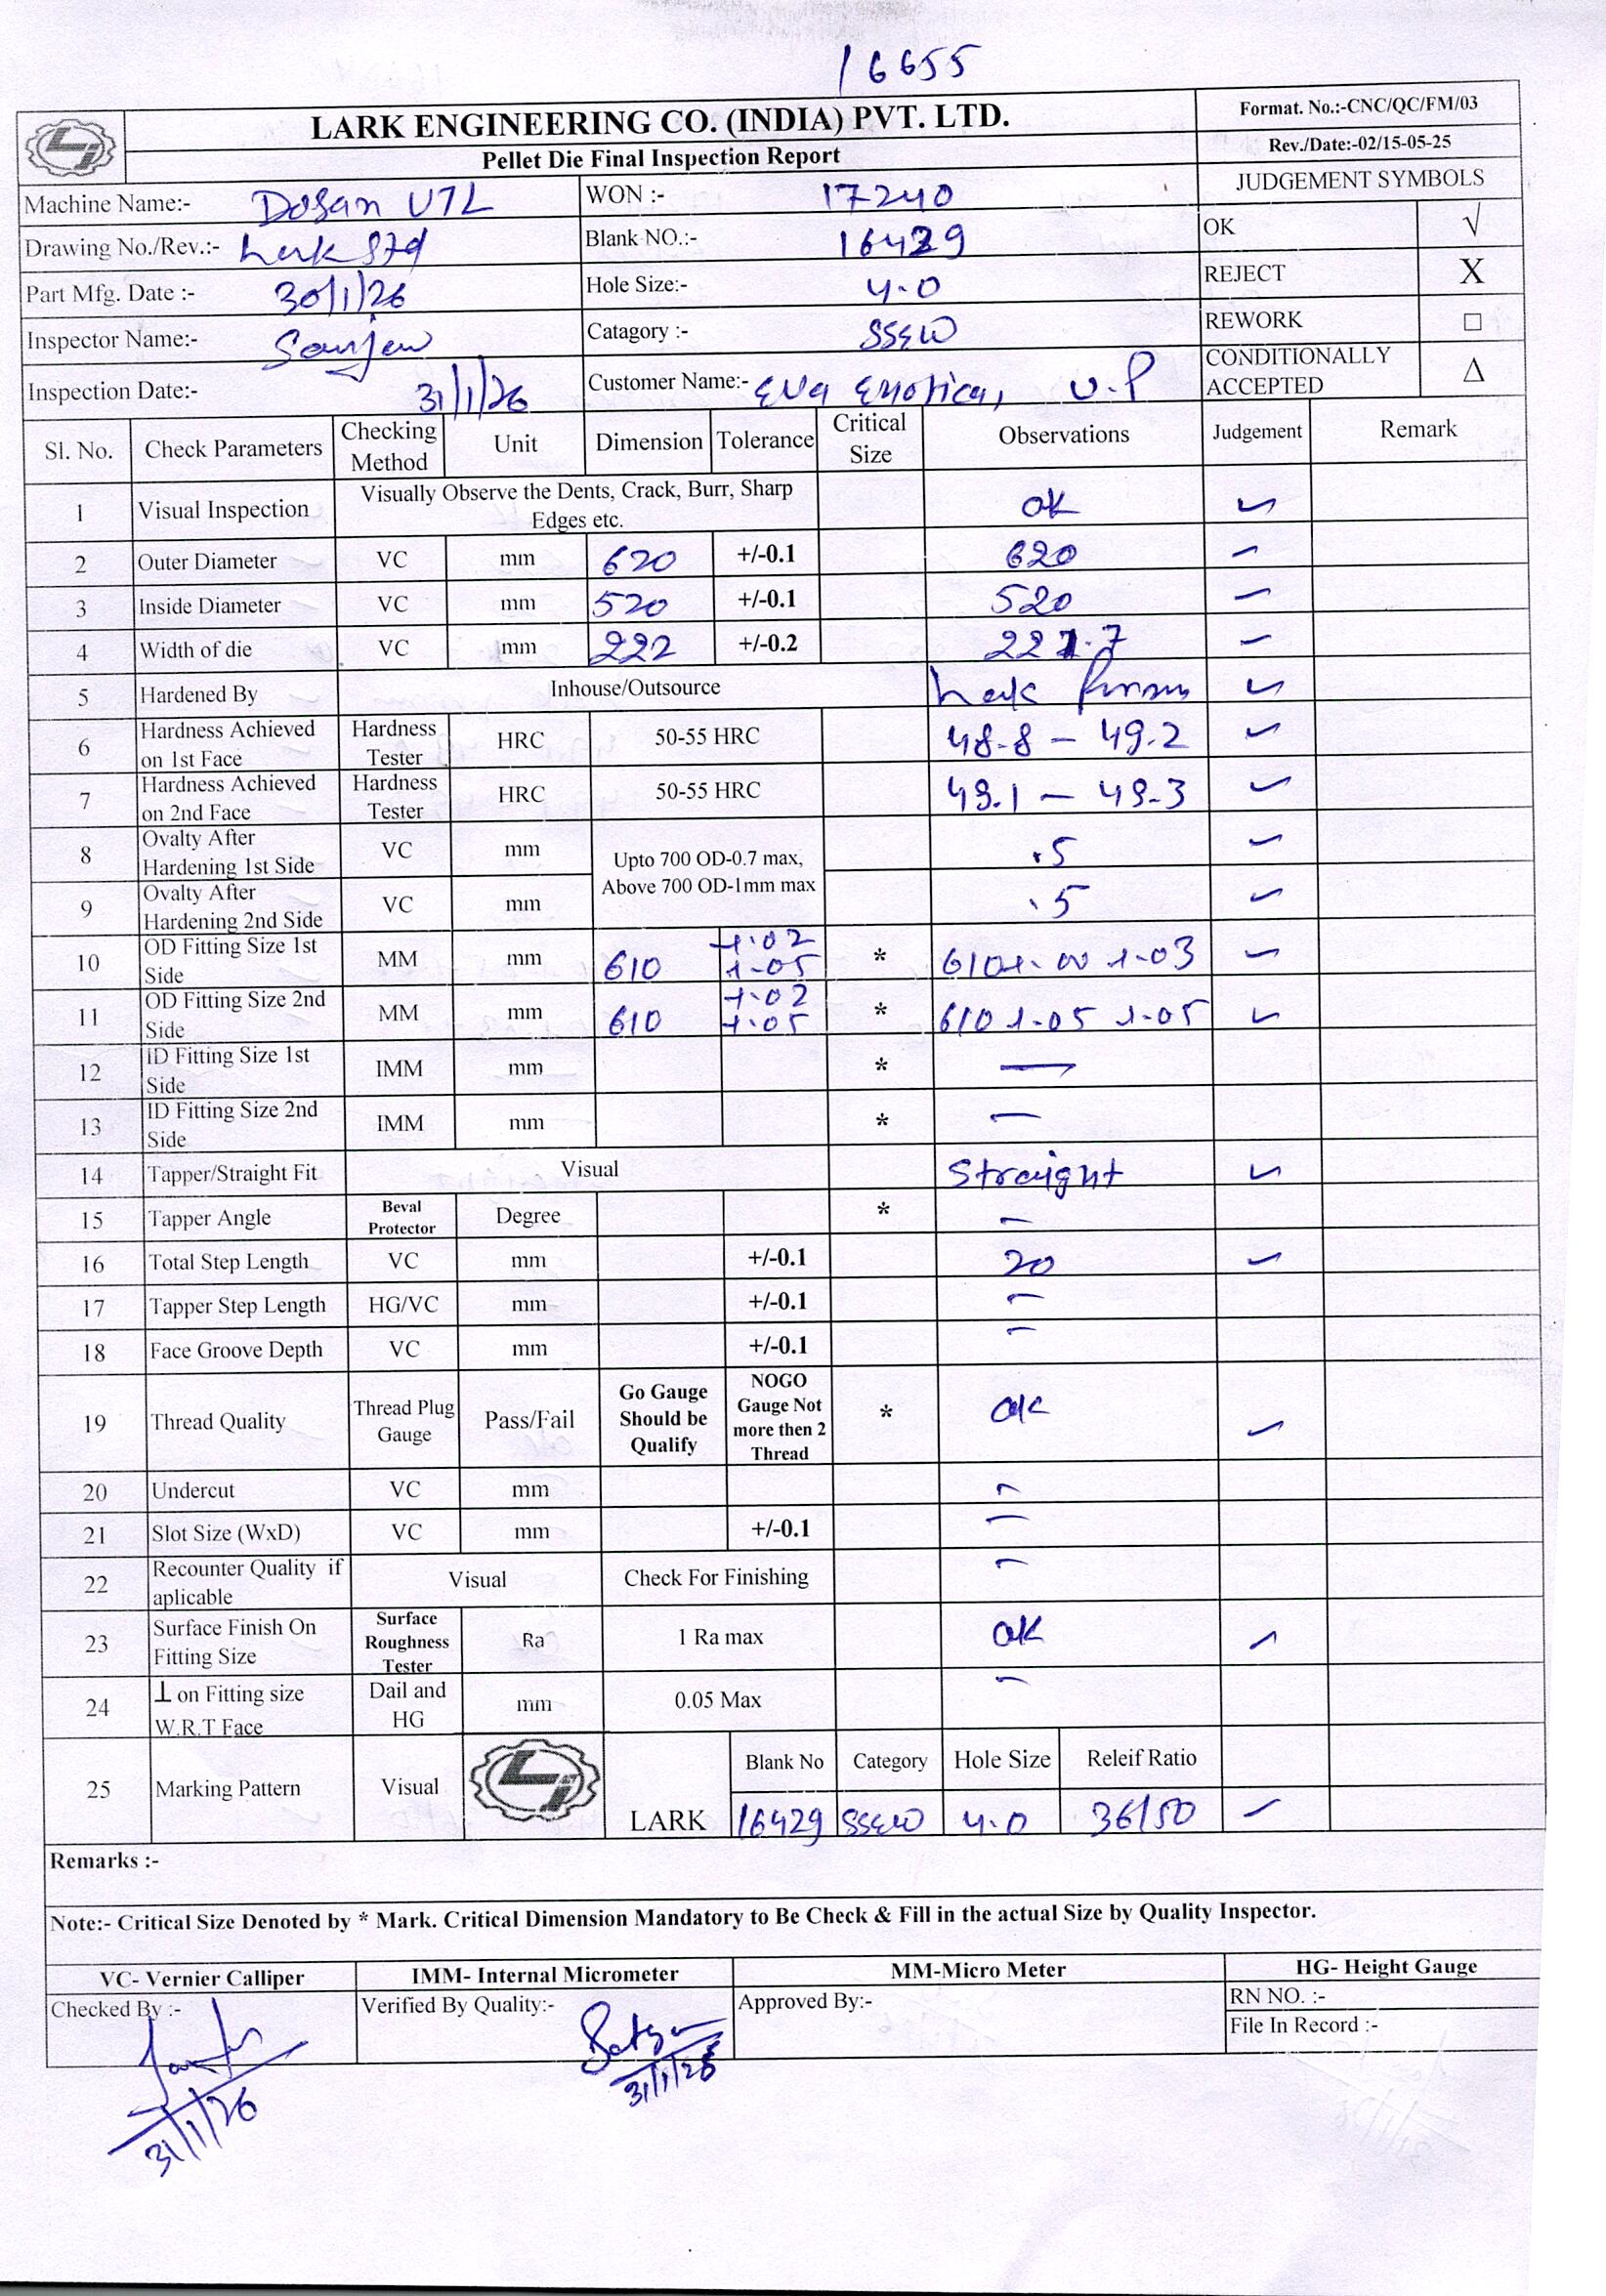 16655
LARK ENGINEERING CO. (INDIA) PVT. LTD.
Pellet Die Final Inspection Report
Format. No.:-CNC/QC/FM/03
Rev./Date:-02/15-05-25
Machine Name:- Dosan VTL WON :- 17240 JUDGEMENT SYMBOLS
Drawing No./Rev.:- Lark Std Blank NO.:- 16429 OK √
Part Mfg. Date :- 30/1/26 Hole Size:- 4.0 REJECT X
Inspector Name:- Sanjeev Catagory :- SSEW REWORK □
Inspection Date:- 31/1/26 Customer Name:- Eva U.P CONDITIONALLY ACCEPTED Δ
Sl. No. Check Parameters Checking Method Unit Dimension Tolerance Critical Size Observations Judgement Remark
1 Visual Inspection Visually Observe the Dents, Crack, Burr, Sharp Edges etc. OK ✓
2 Outer Diameter VC mm 620 +/-0.1 620 ✓
3 Inside Diameter VC mm 520 +/-0.1 520 ✓
4 Width of die VC mm 222 +/-0.2 221.7 ✓
5 Hardened By Inhouse/Outsource Lark ✓
6 Hardness Achieved on 1st Face Hardness Tester HRC 50-55 HRC 48.8 - 49.2 ✓
7 Hardness Achieved on 2nd Face Hardness Tester HRC 50-55 HRC 49.1 - 49.3 ✓
8 Ovalty After Hardening 1st Side VC mm Upto 700 OD-0.7 max, Above 700 OD-1mm max .5 ✓
9 Ovalty After Hardening 2nd Side VC mm .5 ✓
10 OD Fitting Size 1st Side MM mm 610 +.02 +.05 * 610+.00 +.03 ✓
11 OD Fitting Size 2nd Side MM mm 610 +.02 +.05 * 610 +.05 +.05 ✓
12 ID Fitting Size 1st Side IMM mm * —
13 ID Fitting Size 2nd Side IMM mm * —
14 Tapper/Straight Fit Visual Straight ✓
15 Tapper Angle Beval Protector Degree * —
16 Total Step Length VC mm +/-0.1 20 ✓
17 Tapper Step Length HG/VC mm +/-0.1 —
18 Face Groove Depth VC mm +/-0.1 —
19 Thread Quality Thread Plug Gauge Pass/Fail Go Gauge Should be Qualify NOGO Gauge Not more then 2 Thread * OK ✓
20 Undercut VC mm —
21 Slot Size (WxD) VC mm +/-0.1 —
22 Recounter Quality if aplicable Visual Check For Finishing —
23 Surface Finish On Fitting Size Surface Roughness Tester Ra 1 Ra max OK ✓
24 ⊥ on Fitting size W.R.T Face Dail and HG mm 0.05 Max —
25 Marking Pattern Visual LARK Blank No Category Hole Size Releif Ratio
16429 SSEW 4.0 36/50 ✓
Remarks :-
Note:- Critical Size Denoted by * Mark. Critical Dimension Mandatory to Be Check & Fill in the actual Size by Quality Inspector.
VC- Vernier Calliper IMM- Internal Micrometer MM-Micro Meter HG- Height Gauge
Checked By :- Verified By Quality:- Approved By:- RN NO. :-
File In Record :-
31/1/26
31/1/26